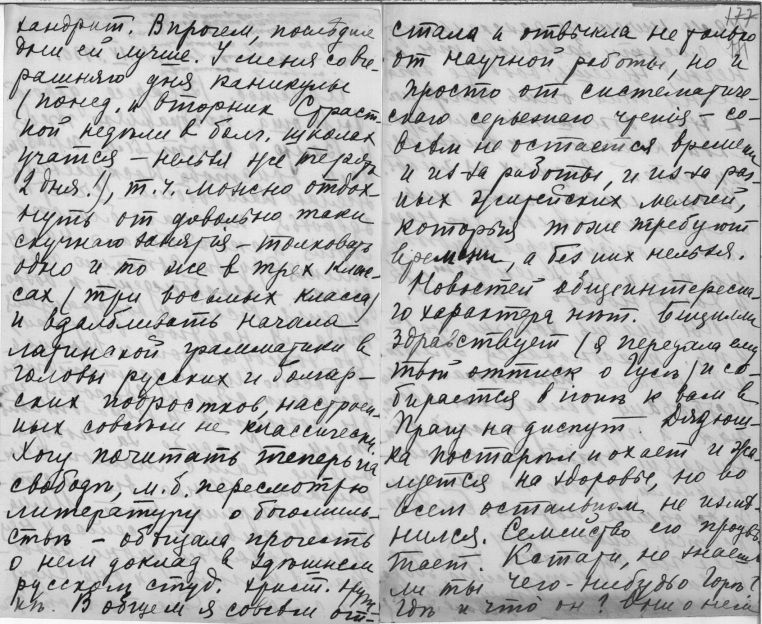 хандрит. Впрочем, последние
дни ей лучше. У меня со вче-
рашняго дня каникулы
(понед. и вторник Страст-
ной недели в болг. школах
учатся – нельзя же терять
2 дня!), т. ч. можно отдох
нуть от довольно таки
скучнаго занятія – толковать
одно и то же в трех клас-
сах (три восьмых класса)
и вдалбливать начала
латинской грамматики в
головы русских и болгар-
ских подростков, настроен-
ных совсем не классически.
Хочу почитать теперь на
свободѣ, м. б. пересмотрю
литературу о богомиль-
ствѣ – обѣщала прочесть
о нем доклад в здѣшнем
русском студ. христ. круж-
кѣ. В общем я совсем от-
177
стала и отвыкла не только
от научной работы, но и
просто от систематиче-
скаго серьезнаго чтенія – со-
всѣм не остается времени
и из-за работы, и из-за раз-
ных житейских мелочей,
которыя тоже требуют
времени, а без них нельзя.
Новостей общеинтересна-
го характера нѣт. Бицилли
здравствует (я передала ему
твой оттиск о Гусѣ) и со-
бирается в іюнѣ к вам в
Прагу на диспут. Дядюш-
ка постарѣл и охает и жа-
луется на здоровье, но во
всем остальном не измѣ-
нился. Семейство его процвѣ-
тает. Кстати, не знаешь
ли ты чего-нибудь
гдѣ и что он? о нем